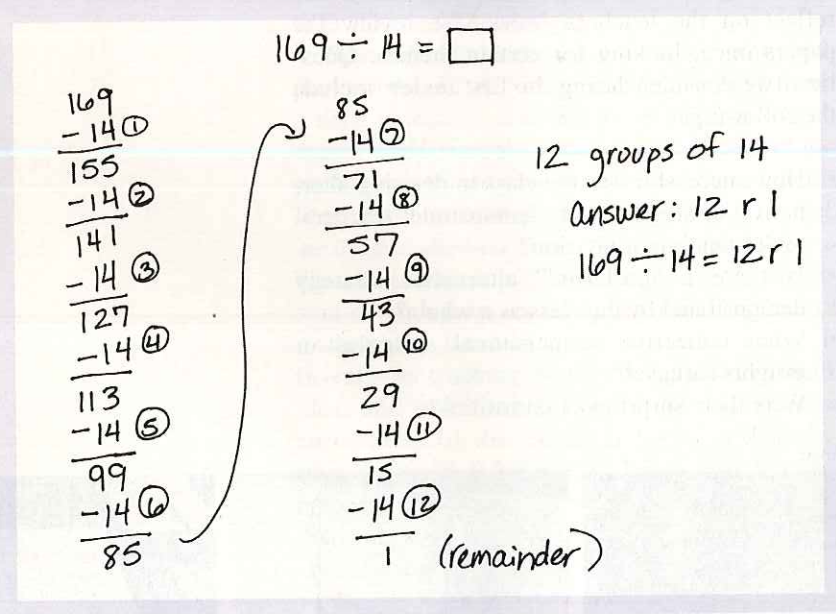 169 ÷ 14 = □
169
- 14 ①
155
- 14 ②
141
- 14 ③
127
- 14 ④
113
- 14 ⑤
99
- 14 ⑥
85
85
- 14 ⑦
71
- 14 ⑧
57
- 14 ⑨
43
- 14 ⑩
29
- 14 ⑪
15
- 14 ⑫
1 (remainder)
12 groups of 14
answer: 12 r 1
169 ÷ 14 = 12 r 1